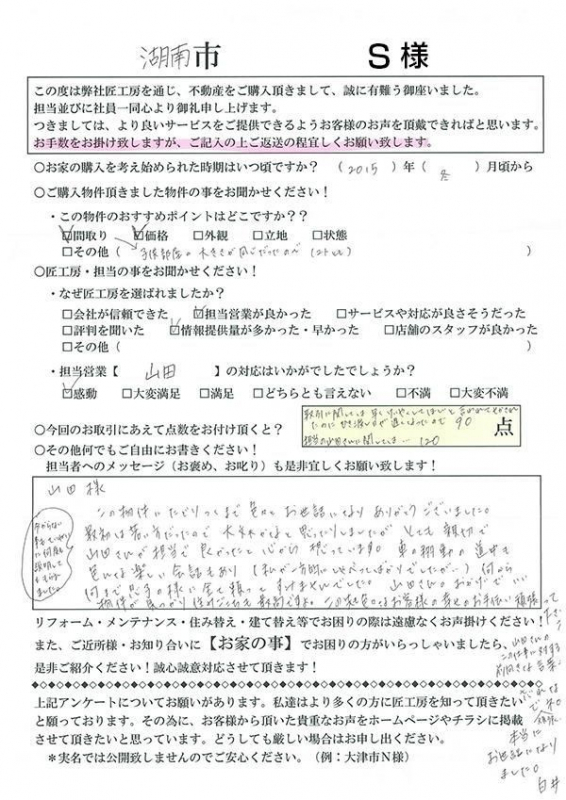 湖南市 S様
この度は弊社匠工房を通じ、不動産をご購入頂きまして、誠に有難う御座いました。
担当並びに社員一同心より御礼申し上げます。
つきましては、より良いサービスをご提供できるようお客様のお声を頂戴できればと思います。
お手数をお掛け致しますが、ご記入の上ご返送の程宜しくお願い致します。
○お家の購入を考え始められた時期はいつ頃ですか？（2015）年（冬）月頃から
○ご購入物件頂きました物件の事をお聞かせください！
・この物件のおすすめポイントはどこですか？？
☑間取り ☑価格 □外観 □立地 □状態
□その他（子供部屋の大きさが）
○匠工房・担当の事をお聞かせください！
・なぜ匠工房を選ばれましたか？
□会社が信頼できた ☑担当営業が良かった □サービスや対応が良さそうだった
□評判を聞いた ☑情報提供量が多かった・早かった □店舗のスタッフが良かった
□その他（ ）
・担当営業【山田】の対応はいかがでしたでしょうか？
☑感動 □大変満足 □満足 □どちらとも言えない □不満 □大変不満
○今回のお取引にあえて点数をお付け頂くと？
90
120
点
○その他何でもご自由にお書きください！
担当者へのメッセージ（お褒め、お叱り）も是非宜しくお願い致します！
山田様
この物件にたどりつくまで色々とお世話になりありがとうございました。
最初は若い方だったので大丈夫かなと思ったりしましたがとても親切で
山田さんが担当で良かったと心から思っています。車の移動の道中も
色んな楽しい会話もあり（私が一方的にしゃべってばかりでしたが…）何から
何まで
山田さんのおかげでいい
物件が見つかり
リフォーム・メンテナンス・住み替え・建て替え等でお困りの際は遠慮なくお声掛けください！
また、ご近所様・お知り合いに【お家の事】でお困りの方がいらっしゃいましたら、
是非ご紹介ください！誠心誠意対応させて頂きます！
上記アンケートについてお願いがあります。私達はより多くの方に匠工房を知って頂きたい
と願っております。その為に、お客様から頂いた貴重なお声をホームページやチラシに掲載
させて頂きたいと思っています。どうしても厳しい場合はお申し出ください。
＊実名では公開致しませんのでご安心ください。（例：大津市N様）
本当に
お世話になり
ました。
白井